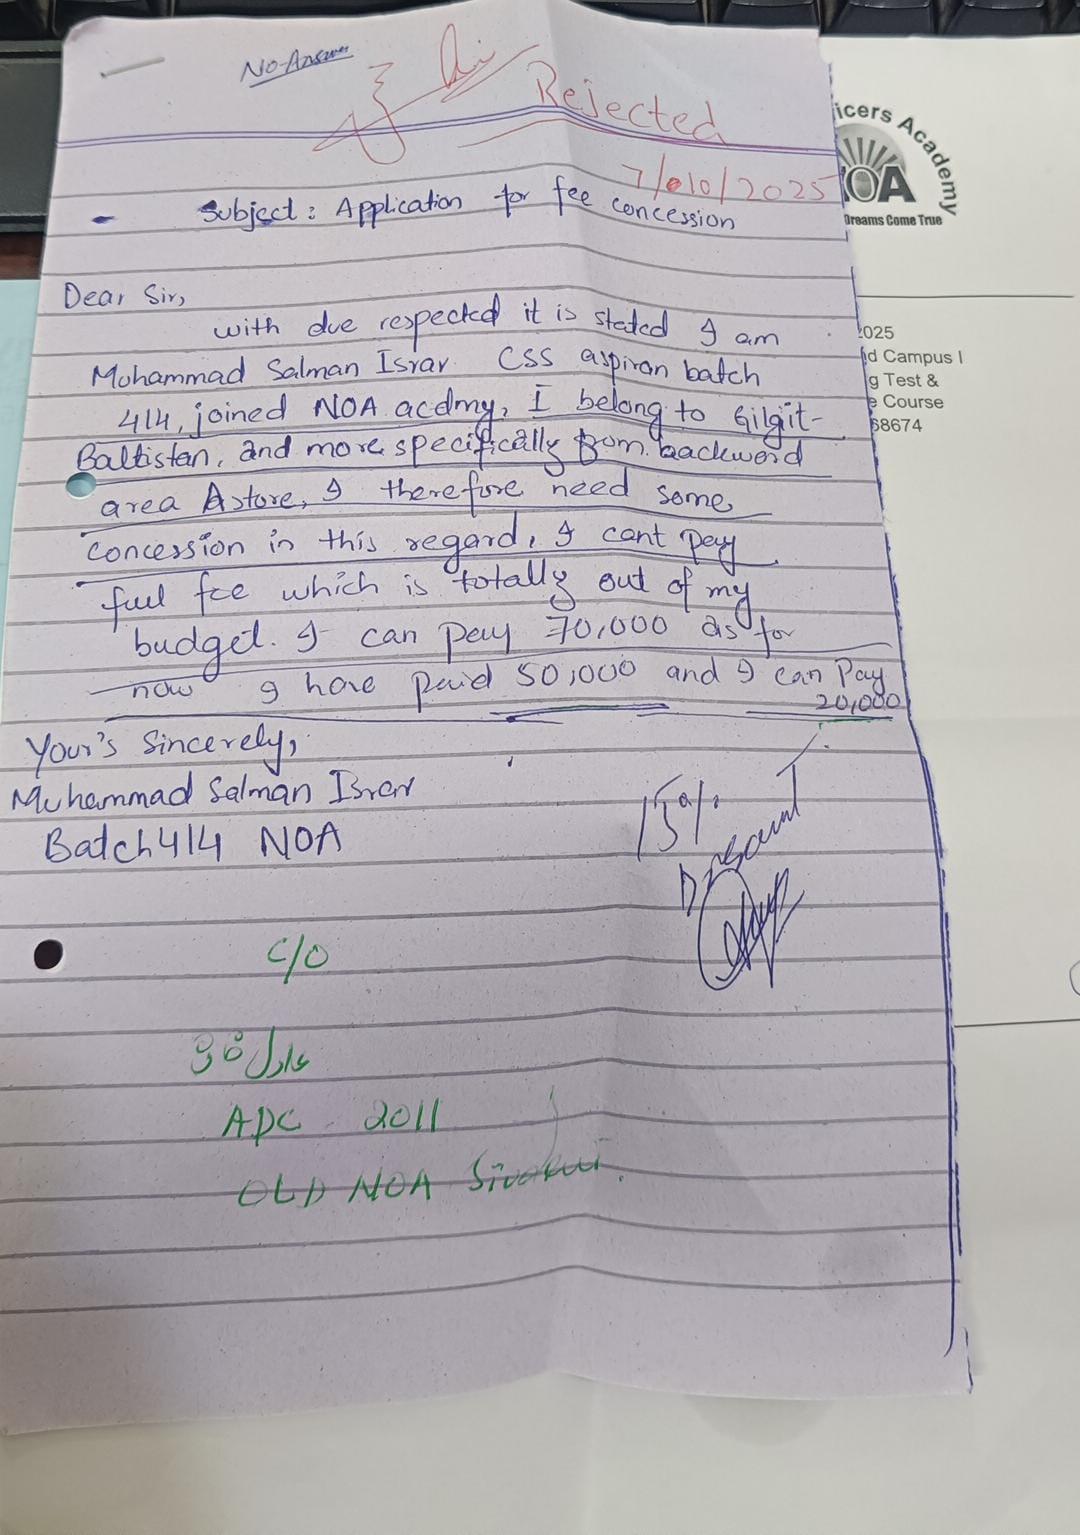 No Answer
Rejected
7/010/2025
Subject: Application for fee concession
Dear Sir,
with due respected it is stated I am
Mohammad Salman Israr CSS aspiran batch
414, joined NOA acdmy, I belong to Gilgit-
Baltistan, and more specifically from backword
area Astore, I therefore need some
concession in this regard, I cant pay
full fee which is totally out of my
budget. I can pay 70,000 as for
now I have paid 50,000 and I can Pay
20,000
Your's Sincerely,
Muhammad Salman Israr
Batch 414 NOA
15%
C/O
عادل
ADC 2011
OLD NOA
icers Academy
OA
Dreams Come True
2025
d Campus I
g Test &
e Course
68674